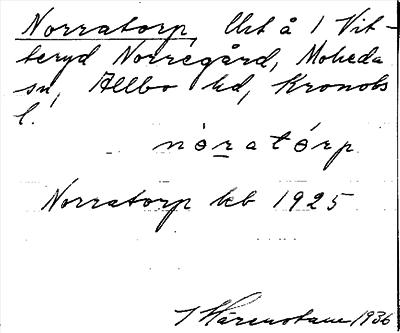 Norratorp, lht å 1 Vit-
teryd Norregård, Moheda
sn, Allbo hd, Kronobs
l.
nòratórp
Norratorp kb 1925
1936